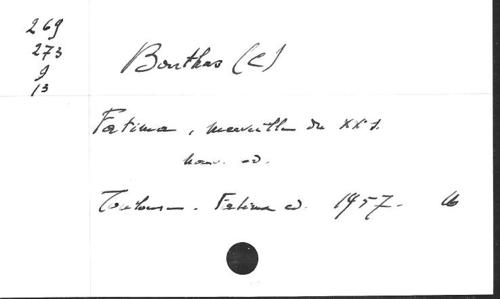 269
273
9
13
Barthas (C)
Fatima, merveille du XXe s.
nouv. ed.
Toulouse. Fatima ed. 1957.